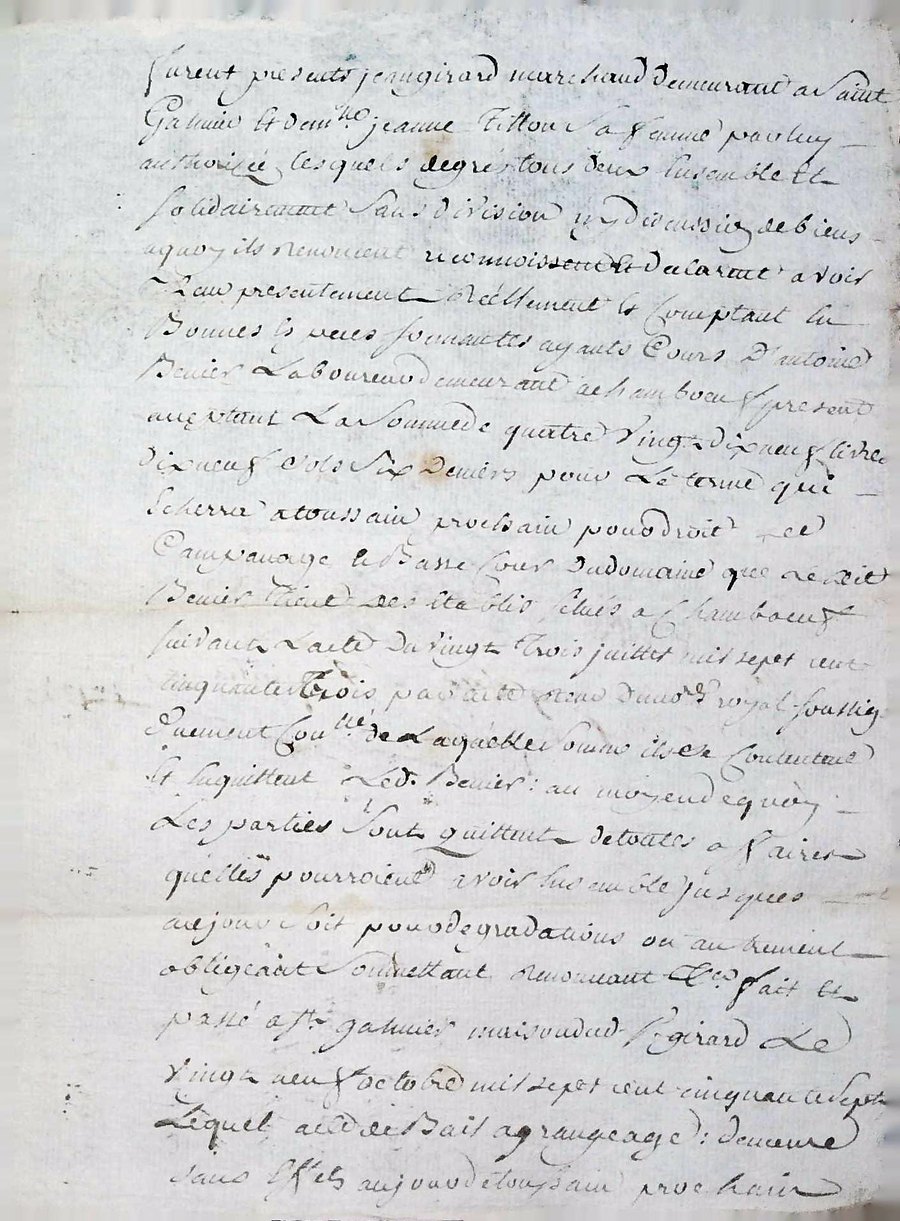 furent presents jean girard marchand demeurant a Saint
Galmier et dem.lle jeanne Tillon Sa femme par luy
authorisée, lesquels de gré tous deux Ensemble Et
Solidairement Sans division ny discussion de biens
aquoy ils Renoncent reconnoissent Et declarent avoir
Receu presentement Réellement Et Comptant En
Bonnes Especes Sonnantes ayants Cours D'antoine
Benier Laboureur demeurant a Chamboeuf present
acceptant La Somme de quatre Vingt dix neuf livres
dix neuf Sols Six Deniers pour Le terme qui
Echerra a toussain prochain pour droit de
Campanage et Basse Cour du domaine que Ledit
Benier Tient des Establis Situés a Chamboeuf
Suivant L'acte du vingt Trois juillet mil Sept cent
Cinquante Trois par acte receu du no.re royal Soussig.
de Laquelle Somme ils Se Contentent
Et Enquittent Led. Benier : au moyen de quoy
Les parties Sont quittent de toutes affaires
qu'elles pourroient avoir Ensemble jusques
au jour Soit pour degradations ou autrement
obligeant Soumettant Renonceant &ca fait Et
passé a St. galmier maison dud. Sr. girard Le
Vingt neuf octobre mil Sept cent cinquante Sept
Lequel acte de Bail a grangeage : demeure
Sans Effets au jour de toussain prochain